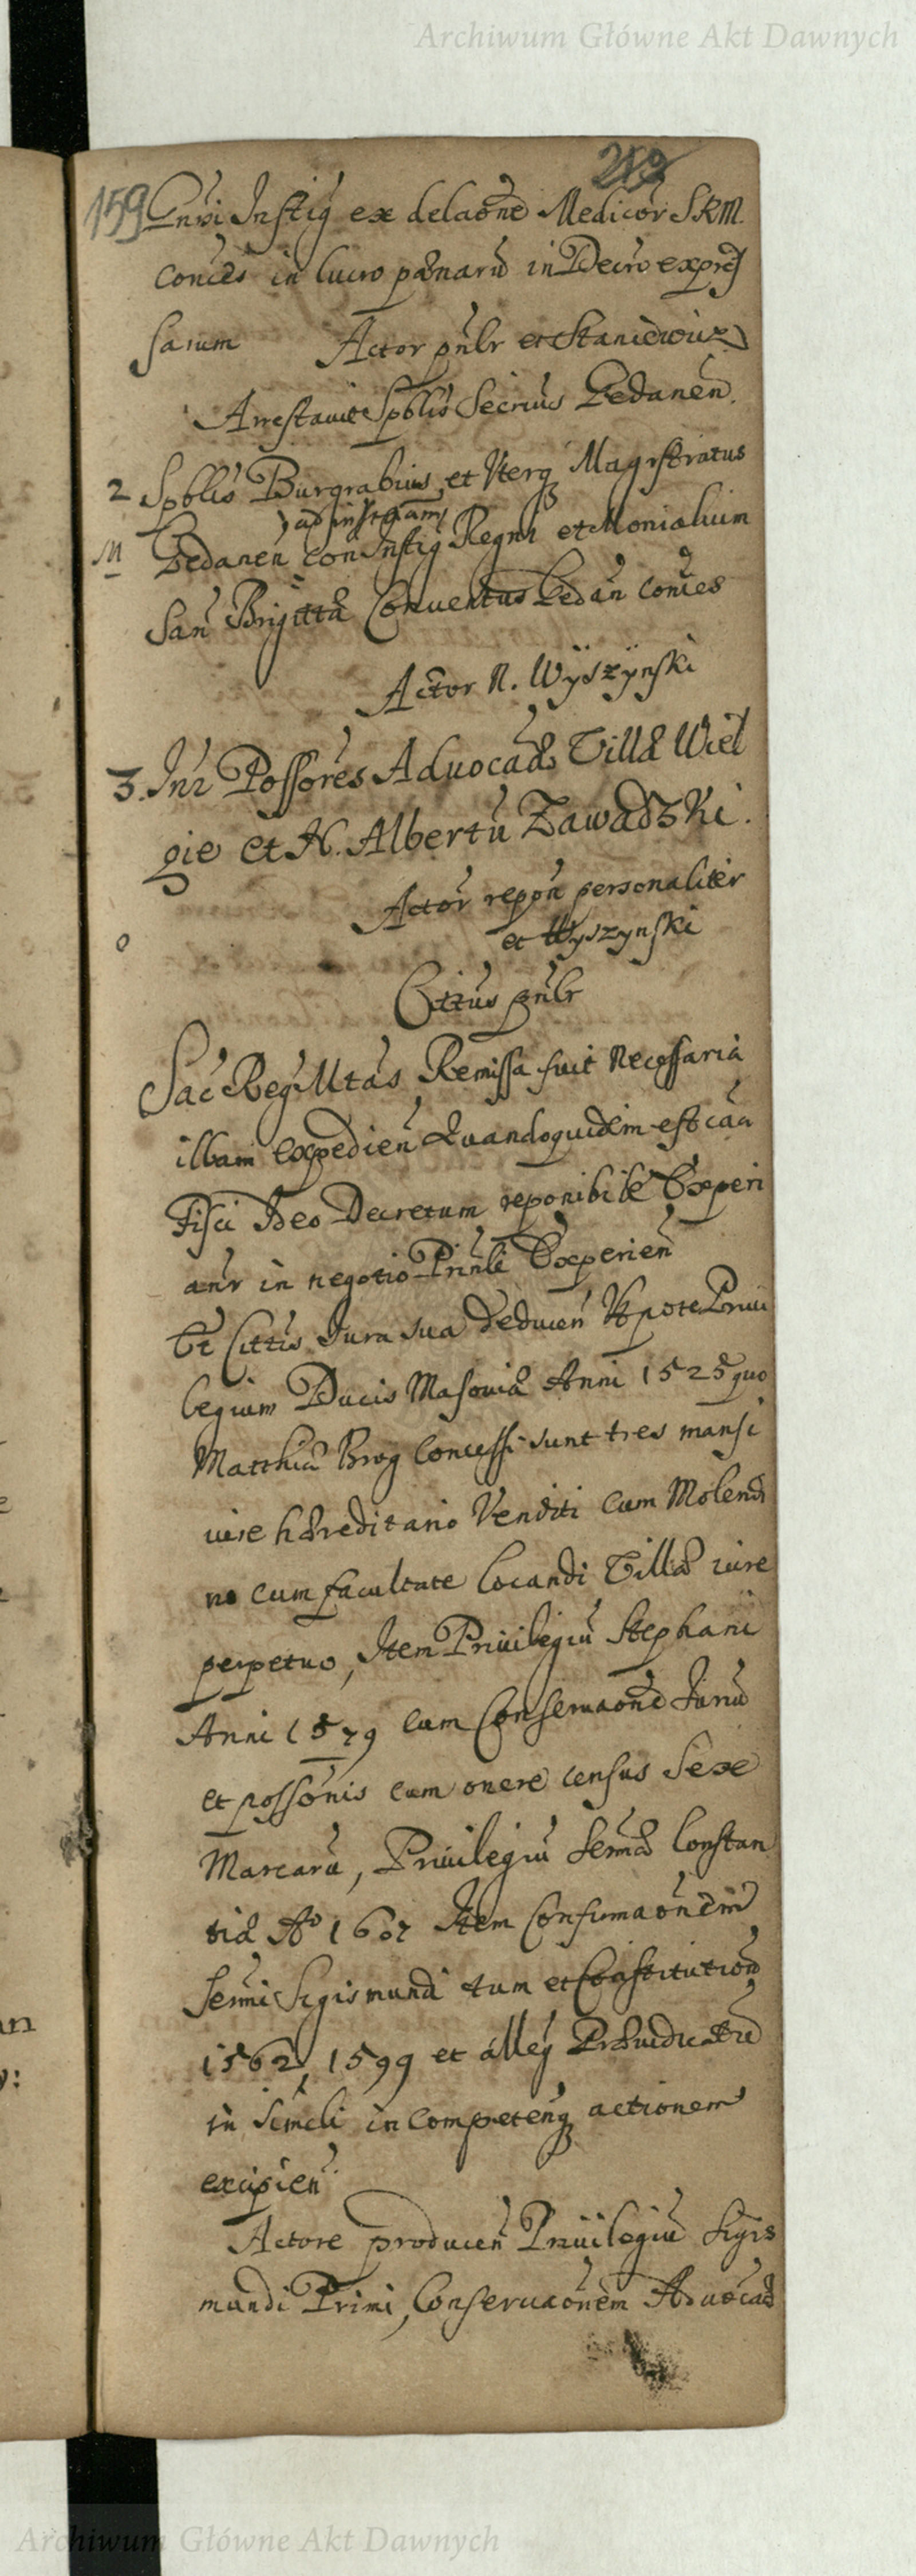 Archiwum Główne Akt Dawnych
219
159 Gnri Instig ex delaõne Medicor SRM.
Conces in lucro pœnarũ in Decro expres
sarum Actor pñlr et Staniewicz
Arrestavit Spblis Secrius Gedanen.
2 Spblis Burgrabius et Uterq Magistratus
ad instãm
M Gedanen con Instig Regni et Monialium
San Brigittæ Conventus Gedan Conces
Actor N. Wyszynski
3. Inr Possores Advocaæ Villæ Wiel
gie et N. Albertũ Zawadzki.
Actor repon personaliter
et Wyszynski
Cittus pñlr
Sac Reg Mtas, Remissa fuit Necessaria
illam expedien Quandoquidem est cãa
Fisci Ideo Decretum reponibile Experi
anr in negotio Prinli Experien
Et Cittis Jura sua deducen Utpote Privi
legium Ducis Masoviæ Anni 1525 quo
Matthiæ Brog Concessi sunt tres mansi
iure hæreditario Venditi cum Molendi
no cum facultate locandi Villæ iure
perpetuo, Item Privilegiũ Stephani
Anni 1579 cum Conservaõne Juriũ
et possõnis cum onere census Sex
Marcarũ, Privilegiũ Sermæ Constan
tiæ Aº 1607 Item Confirmaõnem
Sermi Sigismundi tum et Constitutiõ
1562, 1599 et alleg Præiudicatũ
in simili incompetenq actionem
excipien
Actore producen Privilegiũ Sigis
mundi Primi, Conservaõnem Advocaæ
Archiwum Główne Akt Dawnych